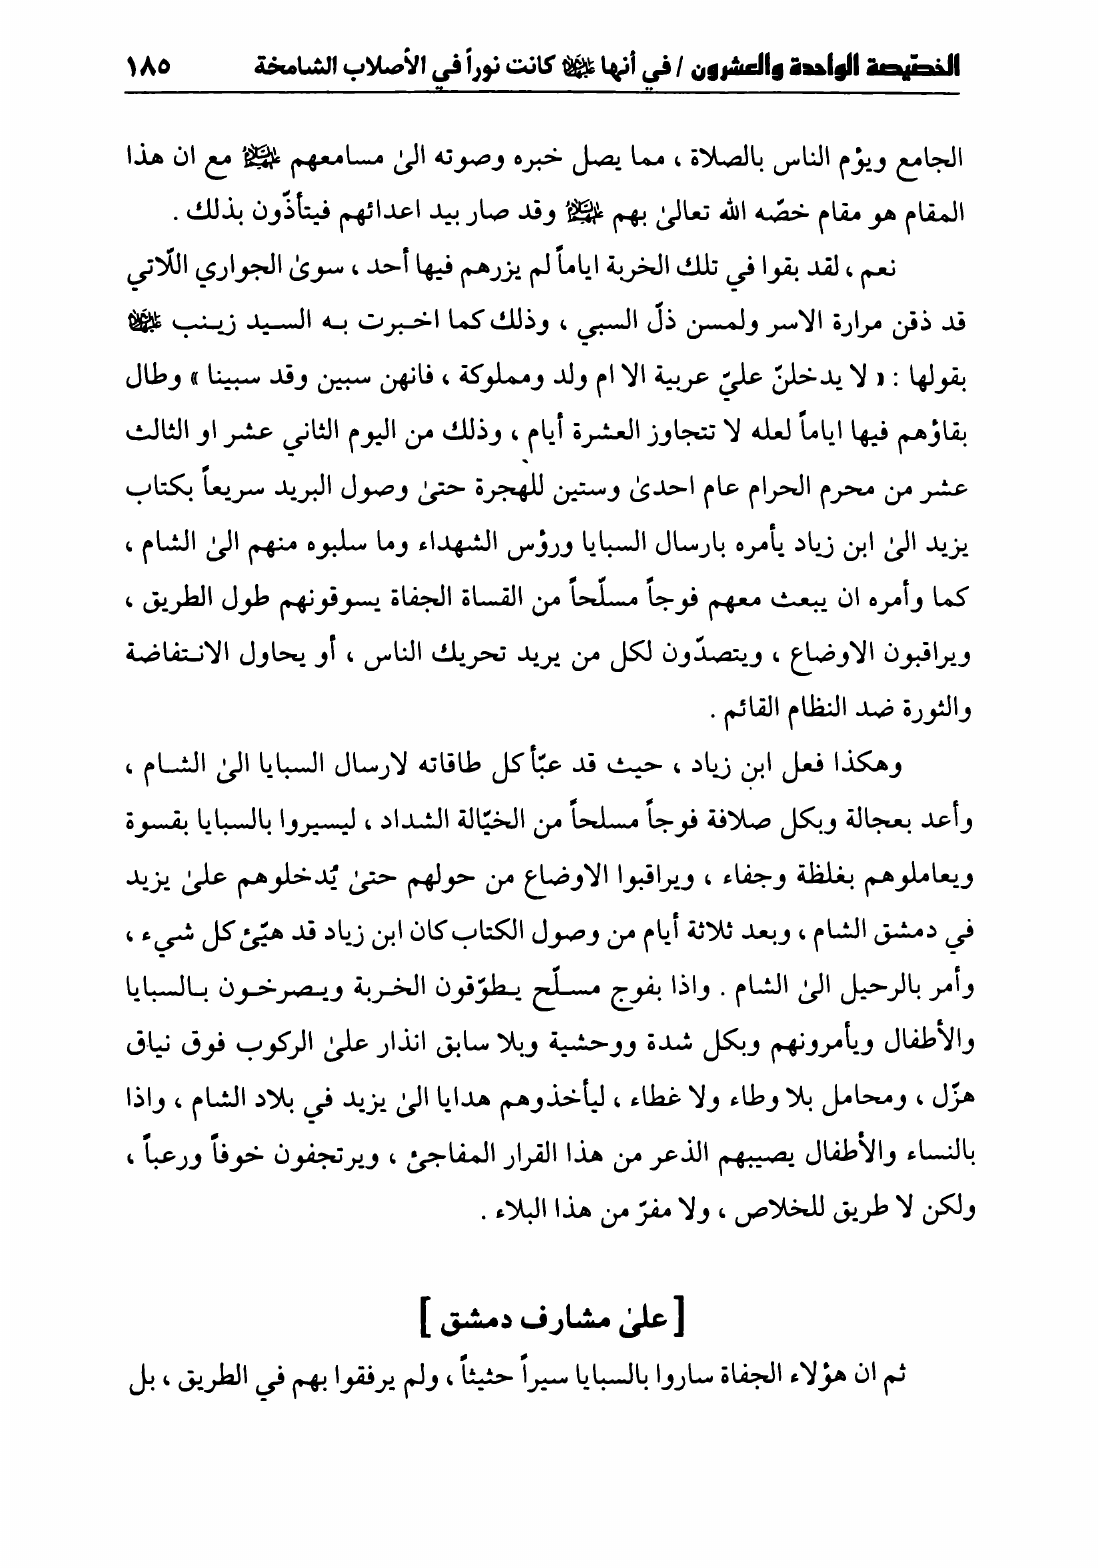 الخصّيصة الواحدة والعشرون / في أنها عليها السلام كانت نوراً في الأصلاب الشامخة ١٨٥
الجامع ويؤم الناس بالصلاة ، مما يصل خبره وصوته الىٰ مسامعهم عليهم السلام مع ان هذا
المقام هو مقام خصّه الله تعالىٰ بهم عليهم السلام وقد صار بيد اعدائهم فيتأذّون بذلك .
نعم ، لقد بقوا في تلك الخربة اياماً لم يزرهم فيها أحد ، سوىٰ الجواري اللّاتي
قد ذقن مرارة الاسر ولمسن ذلّ السبي ، وذلك كما اخبرت به السيد زينب عليها السلام
بقولها : « لا يدخلنّ عليّ عربية الا ام ولد ومملوكة ، فانهن سبين وقد سبينا » وطال
بقاؤهم فيها اياماً لعله لا تتجاوز العشرة أيام ، وذلك من اليوم الثاني عشر او الثالث
عشر من محرم الحرام عام احدىٰ وستين للهجرة حتىٰ وصول البريد سريعاً بكتاب
يزيد الىٰ ابن زياد يأمره بارسال السبايا ورؤس الشهداء وما سلبوه منهم الىٰ الشام ،
كما وأمره ان يبعث معهم فوجاً مسلّحاً من القساة الجفاة يسوقونهم طول الطريق ،
ويراقبون الاوضاع ، ويتصدّون لكل من يريد تحريك الناس ، أو يحاول الانتفاضة
والثورة ضد النظام القائم .
وهكذا فعل ابن زياد ، حيث قد عبّأ كل طاقاته لارسال السبايا الىٰ الشام ،
وأعد بعجالة وبكل صلافة فوجاً مسلحاً من الخيّالة الشداد ، ليسيروا بالسبايا بقسوة
ويعاملوهم بغلظة وجفاء ، ويراقبوا الاوضاع من حولهم حتىٰ يُدخلوهم علىٰ يزيد
في دمشق الشام ، وبعد ثلاثة أيام من وصول الكتاب كان ابن زياد قد هيّئ كل شيء ،
وأمر بالرحيل الىٰ الشام . واذا بفوج مسلّح يطوّقون الخربة ويصرخون بالسبايا
والأطفال ويأمرونهم وبكل شدة ووحشية وبلا سابق انذار علىٰ الركوب فوق نياق
هزّل ، ومحامل بلا وطاء ولا غطاء ، ليأخذوهم هدايا الىٰ يزيد في بلاد الشام ، واذا
بالنساء والأطفال يصيبهم الذعر من هذا القرار المفاجئ ، ويرتجفون خوفاً ورعباً ،
ولكن لا طريق للخلاص ، ولا مفرّ من هذا البلاء .
[ علىٰ مشارف دمشق ]
ثم ان هؤلاء الجفاة ساروا بالسبايا سيراً حثيثاً ، ولم يرفقوا بهم في الطريق ، بل